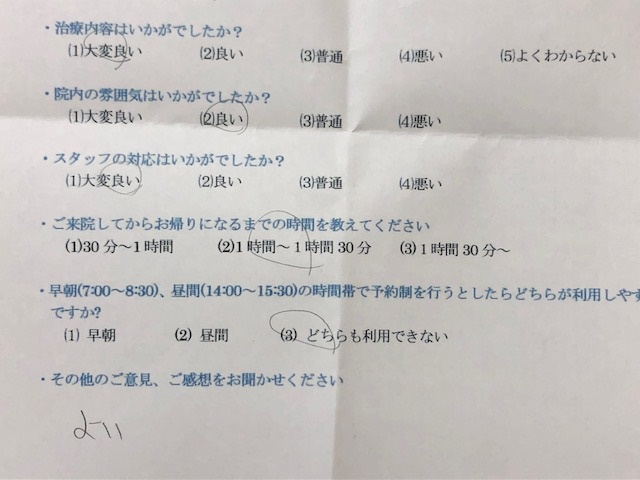 ・治療内容はいかがでしたか？
(1)大変良い (2)良い (3)普通 (4)悪い (5)よくわからない
・院内の雰囲気はいかがでしたか？
(1)大変良い (2)良い (3)普通 (4)悪い
・スタッフの対応はいかがでしたか？
(1)大変良い (2)良い (3)普通 (4)悪い
・ご来院してからお帰りになるまでの時間を教えてください
(1)30分～1時間 (2)1時間～1時間30分 (3)1時間30分～
・早朝(7:00～8:30)、昼間(14:00～15:30)の時間帯で予約制を行うとしたらどちらが利用しやす
ですか?
(1) 早朝 (2) 昼間 (3) どちらも利用できない
・その他のご意見、ご感想をお聞かせください
よい